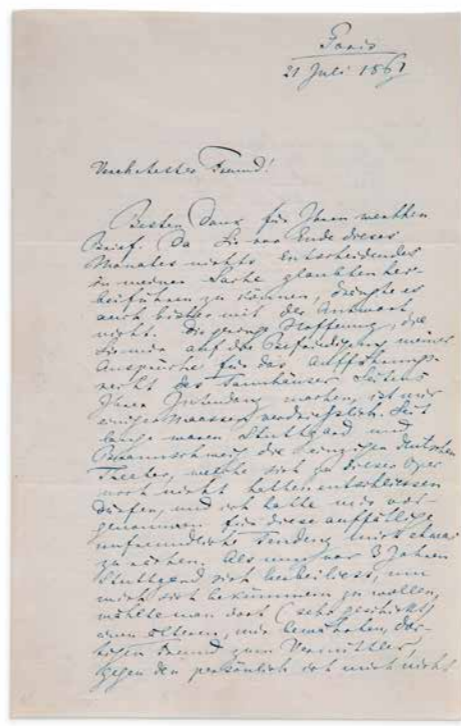 Paris
21 Juli 1861
Verehrtester Freund!
Besten Dank für Ihren werthen
Brief. Da Sie vor Ende dieses
Monates nichts Entscheidendes
in meiner Sache glaubten her-
beiführen zu können, drängte es
auch bisher mit der Antwort
nicht. Die geringe Hoffnung, die
Sie mir auf die Befriedigung meiner
Ansprüche für das Aufführungs-
recht des Tannhäuser Seitens
Ihrer Intendanz machen, ist mir
einiger Maassen verdriesslich. Seit
lange waren Stuttgard und
Braunschweig die einzigen deutschen
Theater, welche sich zu dieser Oper
noch nicht hatten entschliessen
dürfen, und ich hatte mir vor-
genommen für diese auffällige
unfreundliche Tendenz mich etwas
zu rächen. Als nun vor 3 Jahren
Stuttgard sich herbeiliess, um
mich sich bekümmern zu wollen,
wählte man dort (sehr geschickt)
einen ältern, mir bewährten, dor-
tigen Freund zum Vermittler,
gegen den persönlich ich mich nicht